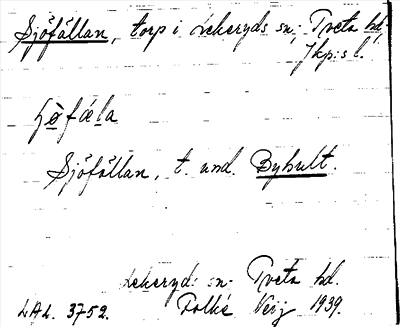 Sjöfållan, torp i Lekeryds sn; Tveta hd,
Jkp:s l.
ʃø̀fåla
Sjöfållan, t. und. Byhult.
Lekeryds sn. Tveta hd.
LAL. 3752. Folke Neij 1939.